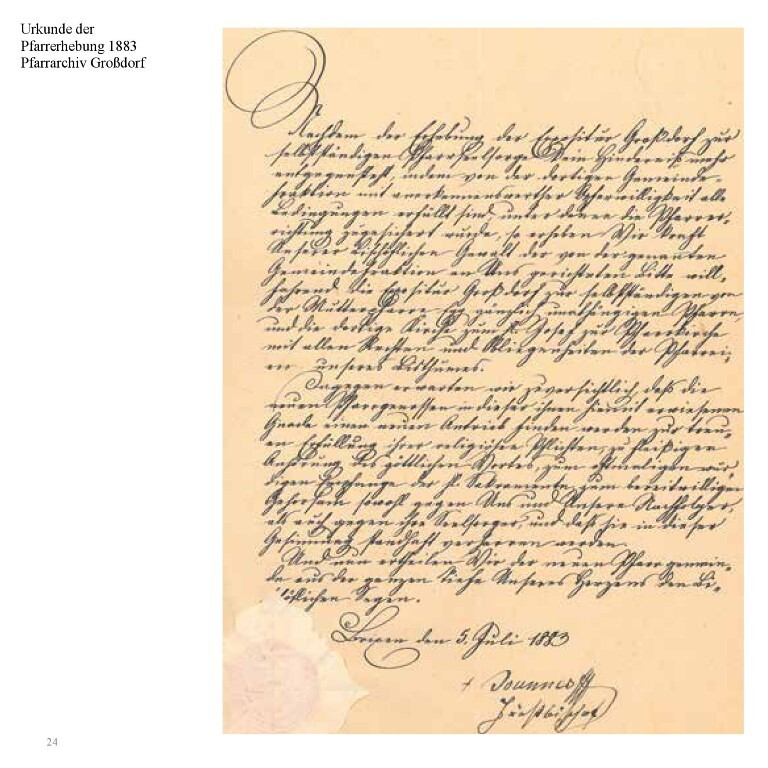 Urkunde der
Pfarrerhebung 1883
Pfarrarchiv Großdorf
Nachdem der Erhebung der Expositur Großdorf zur
selbstständigen Pfarrseelsorge kein Hinderniß mehr
entgegensteht, indem von der dortigen Gemeinde-
fraktion mit anerkennenswerther Opferwilligkeit alle
Bedingungen erfüllt sind, unter denen die Pfarrer-
richtung zugesichert wurde, so erheben Wir kraft
Unserer bischöflichen Gewalt der von der genannten
Gemeindefraktion an Uns gerichteten Bitte will-
fahrend die Expositur Großdorf zur selbstständigen von
der Mutterpfarre Egg gänzlich unabhängigen Pfarre,
und die dortige Kirche zum hl. Josef zur Pfarrkirche
mit allen Rechten und Obliegenheiten der Pfarrei-
en unseres Bisthumes.
Dagegen erwarten wir zuversichtlich, daß die
neuen Pfarrgenossen in dieser ihnen hiemit erwiesenen
Gnade einen neuen Antrieb finden werden zur treu-
en Erfüllung ihrer religiösen Pflichten, zu fleißigen
Anhörung des göttlichen Wortes, zum oftmaligen wür-
digen Empfange der hl. Sakramente, zum bereitwilligen
Gehorsam sowohl gegen Uns und Unsere Nachfolger,
als auch gegen ihre Seelsorger, und daß sie in dieser
Gesinnung standhaft verharren werden.
Und nun ertheilen Wir der neuen Pfarrgemein-
de aus der ganzen Liebe Unseres Herzens den Bi-
schöflichen Segen.
Brixen den 5. Juli 1883
+ Joannes
Fürstbischof
24